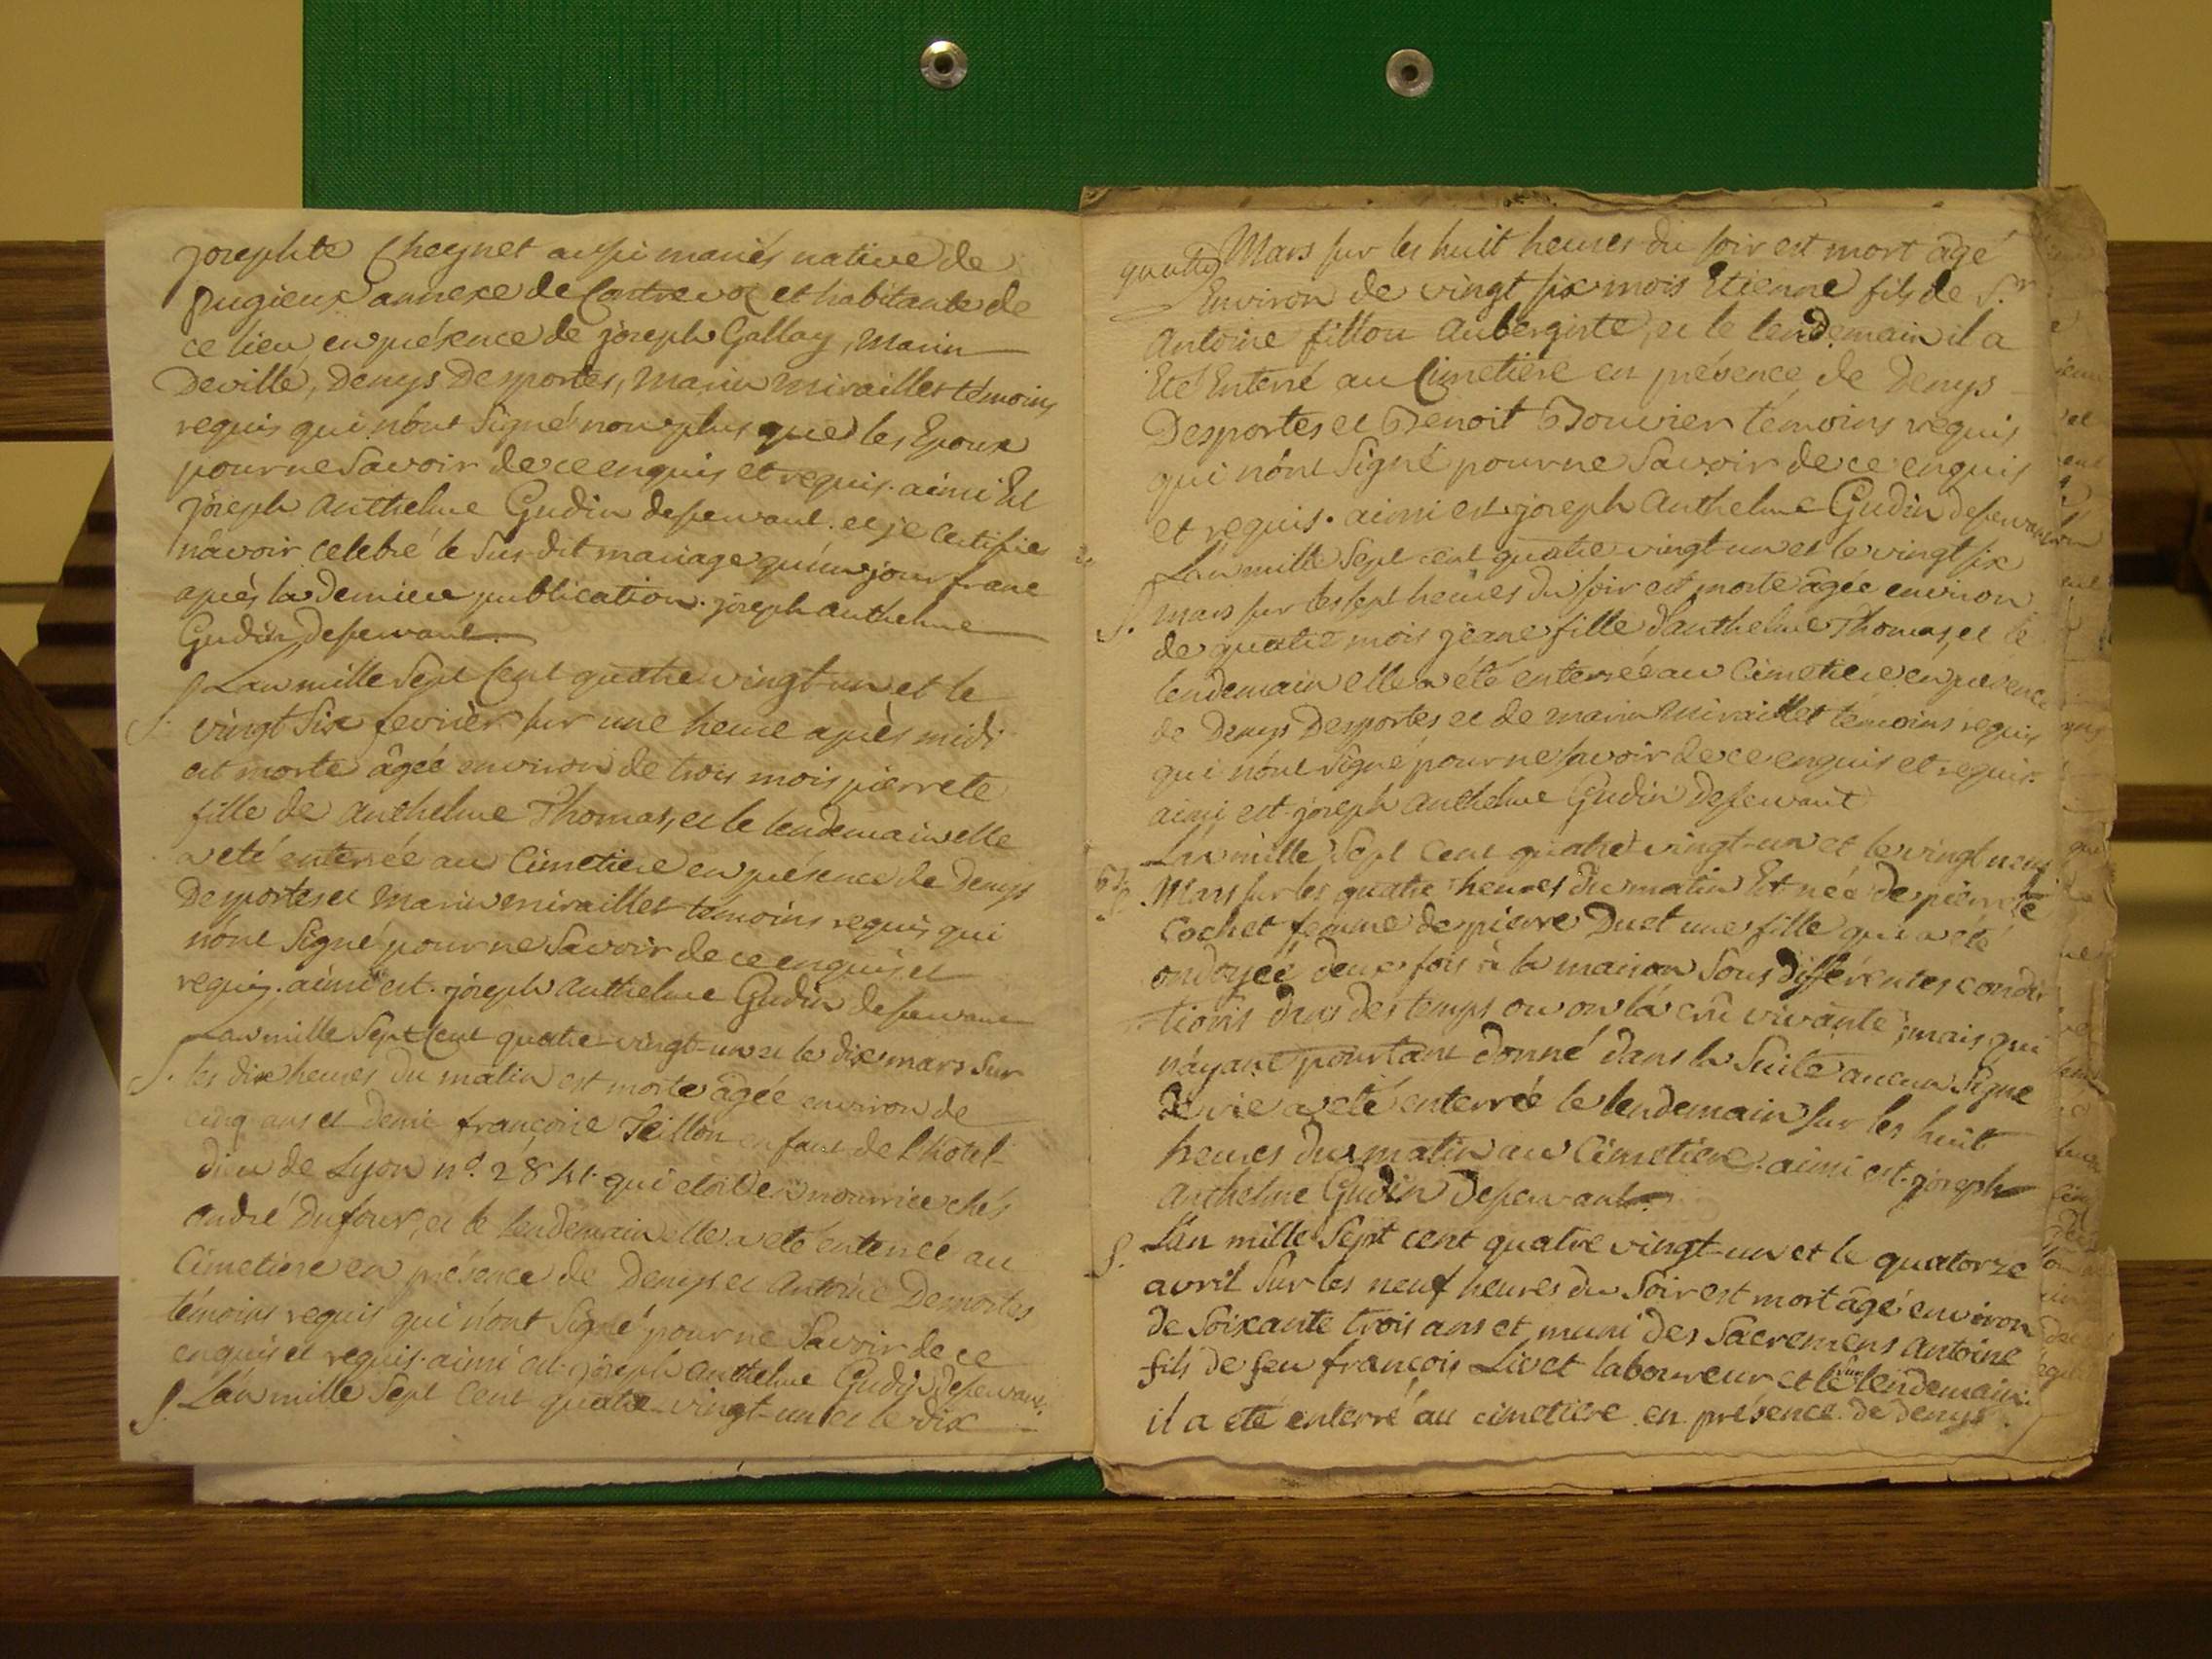 josephte Cheynet aussi mariés native de
pugieux annexe de Contrevoz et habitante de
ce lieu en présence de joseph Gallay, Marin
Deville, Denys Desportes, Marin Miraillet témoins
requis qui n'ont Signé non plus que les Epoux
pour ne Savoir de ce enquis et requis. ainsi Est
joseph Anthelme Gudin desservant. et je Certifie
n'avoir Celebré le Sus dit mariage qu'un jour franc
après la derniere publication. joseph Anthelme
Gudin, desservant.
L'an mille Sept Cent quatre vingt-un et le
S. vingt Six fevrier sur une heure après midi
est morte âgée environ de trois mois pierrete
fille de Anthelme Thomas, et le lendemain elle
a eté enterrée au Cimetiere en présence de Denys
Desportes et Marin miraillet témoins requis qui
n'ont Signé pour ne Savoir de ce enquis et
requis. ainsi est. joseph Anthelme Gudin desservant
L'an mille Sept Cent quatre-vingt-un et le dix mars Sur
S. les dix heures du matin est morte âgée environ de
cinq ans et demi françoise Teillon enfant de L'hotel-
dieu de Lyon n.º 2841. qui etoit en nourrice chés
André Dufour, et le lendemain elle a eté enterrée au
Cimetiere en présence de Denys et Antoine Desportes
témoins requis qui n'ont Signé pour ne Savoir de ce
enquis et requis. ainsi est. joseph Anthelme Gudin desservant.
S. L'an mille Sept Cent quatre-vingt-un et le dix
quatre Mars sur les huit heures du soir est mort âgé
Environ de vingt six mois Etienne fils de S.r
Antoine fillon Aubergiste, et le lendemain il a
Eté Enterré au Cimetiere en présence de Denys
Desportes et Benoit Bouvier témoins requis
qui n'ont Signé pour ne Savoir de ce enquis
et requis. ainsi est. joseph Anthelme Gudin desservant
L'an mille Sept cent quatre vingt-un et le vingt six
S. mars sur les sept heures du soir est morte âgée environ
de quatre mois jeane fille d'Anthelme Thomas, et le
lendemain elle a été enterrée au Cimetiere en présence
de Denys Desportes et de marin Miraillet témoins requis
qui n'ont signé pour ne savoir de ce enquis et requis.
ainsi est. joseph Anthelme Gudin desservant
L'an mille Sept Cent quatre vingt-un et le vingt neuf
Mars sur les quatre heures du matin Est née de pierrete
Cochet femme de pierre Duet une fille qui a eté
ondoyée deux fois à la maison Sous différentes condi-
tions dans des temps ou on l'a crû vivante, mais qui
n'ayant pourtant donné dans la Suite aucun Signe
de vie a eté enterrée le lendemain sur les huit
heures du matin au Cimetiere. ainsi est. joseph
Anthelme Gudin desservant.
S. L'an mille Sept cent quatre vingt-un et le quatorze
avril Sur les neuf heures du Soir est mort âgé environ
de Soixante trois ans et muni des Sacremens Antoine
fils de feu françois Livet laboureur et le lendemain
il a eté enterré au cimetiere en présence de denys